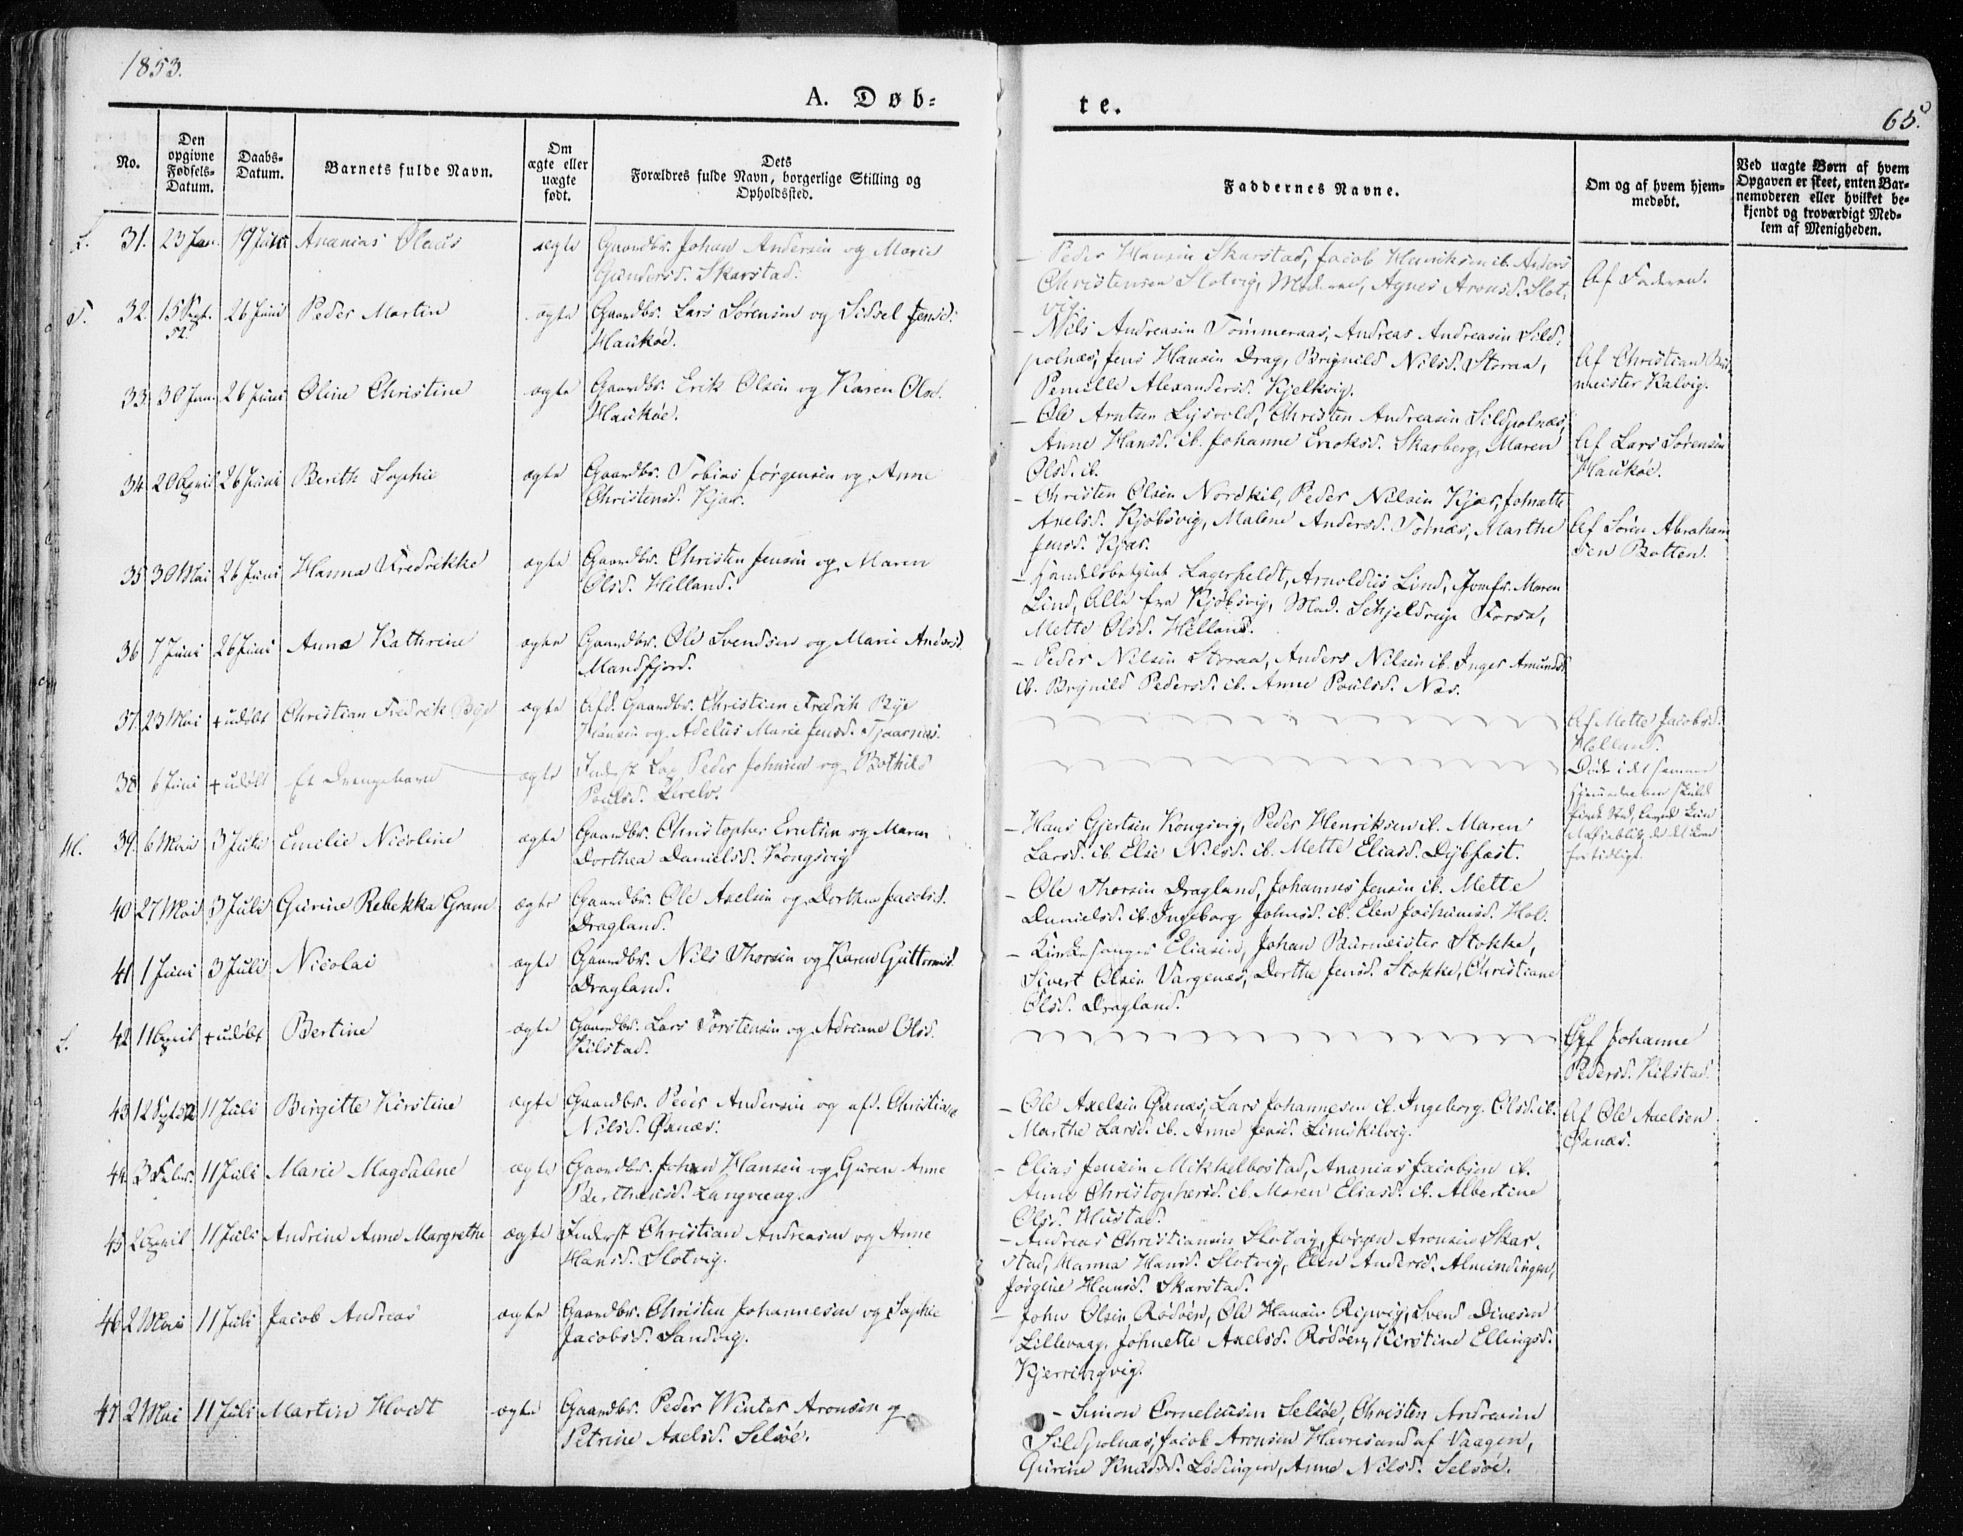 1853.
65.
A. Døb=
te.
No.
Den opgivne Fødsels-Datum.
Daabs-Datum.
Barnets fulde Navn.
Om ægte eller uægte født.
Dets Forældres fulde Navn, borgerlige Stilling og Opholdssted.
Faddernes Navne.
Om og af hvem hjemmedøbt.
Ved uægte Børn af hvem Opgaven er skeet, enten Barnemoderen eller hvilket bekjendt og troværdigt Medlem af Menigheden.
L. 31. 23 Jan. 19 Juni Ananias Olaus ægte Gaardbr. Johan Andersen og Marie
Gundersd. Skarstad.
- Peder Hansen Skarstad, Jacob Henriksen ib. Anders
Christensen Slotvig, Moderen, Agnes Aronsd. Slot-
vig.
Af Faderen.
T. 32. 15 Sept. 52. 26 Juni Peder Martin ægte Gaardbr. Lars Sørensen og Sidsel Jensd.
Haukøe.
- Nils Andreasen Tømmeraas, Andreas Andreasen Sild-
polnæs, Jens Hansen Drag, Brynild Nilsd. Storaa,
Pernille Alexandersd. Kjelkvig.
Af Christian Bur
meister Kalvig.
33. 30 Jan. 26 Juni Oline Christine ægte Gaardbr. Erik Olsen og Karen Olsd.
Haukøe.
- Ole Arntsen Lysvold, Christen Andreasen Sildpolnæs,
Anne Hansd. ib. Johanne Eriksd. Skarberg, Maren
Olsd. ib.
Af Lars Sørensen
Haukøe.
34. 20 April 26 Juni Berith Sophie ægte Gaardbr. Tobias Jørgensen og Anne
Christensd. Kjær.
- Christen Olsen Nordkil, Peder Nilsen Kjær, Johnette
Axelsd. Kjøbsvig, Malene Andersd. Tofnæs, Marthe
Jensd. Kjær.
Af Søren Abraham
sen Botten.
35 30 Mai 26 Juni Hanna Fredrikke ægte Gaardbr. Christen Jensen og Maren
Olsd. Helland.
- Handelsbetjent Lagerheldt, Arnoldus Lind, Jomfr. Maren
Lind, Alle fra Kjøbsvig, Mad. Schjeldrup Forsa,
Mette Olsd. Helland.
36 7 Juni 26 Juni Anna Kathrine ægte Gaardbr. Ole Svendsen og Marie Andersd.
Mandfjord.
- Peder Nilsen Storaa, Anders Nilsen ib. Inger Amundsd.
ib. Brynild Pedersd. ib. Anne Poulsd. Næs.
37. 23 Mai + udøbt Christian Fredrik Bye ægte Afd. Gaardbr. Christian Fredrik Bye
Hansen og Adelus Marie Jensd. Tjaarnæs.
Af Mette Jacobsd.
Helland.
38. 6 Juni + udøbt Et Drengebarn ægte Inderst Lap Peder Johnsen og Bothild
Poulsd.
Døde i det samme
39. 6 Mai 3 Juli Emilie Nicoline ægte Gaardbr. Christopher Erntsen og Maren
Dorthea Danielsd. Kongsvig
- Hans Gjertsen Kongsvig, Peder Henriksen ib. Maren
Larsd. ib. Else Nilsd. ib. Mette Eliasd. Dybfæst.
40 27 Mai 3 Juli Gurine Rebekka Gram ægte Gaardbr. Ole Axelsen og Dorthea Jacobsd.
Dragland.
- Ole Thorsen Dragland, Johannes Jensen ib. Mette
Danielsd. ib. Ingeborg Johnsd. ib. Elen Jochumsd. Hol.
41 1 Juni 3 Juli Nicolai ægte Gaardbr. Nils Thorsen og Karen Guttormsd.
Dragland.
- Kirkesanger Eliasen, Johan Burmeister Stokke,
Sivert Olsen Vargenæs, Dorthe Jensd. Stokke, Christiane
Olsd. Dragland.
L. 42 11 April + udøbt Bertine ægte Gaardbr. Lars Torstensen og Adriane Olsd.
Kilstad.
Af Johanne
Pedersd. Kilstad.
43 12 Sept 52 11 Juli Birgitte Kirstine ægte Gaardbr. Peder Andersen og afd. Christiane
Nilsd. Øxnæs.
- Ole Axelsen Øxnæs, Lars Johannesen ib. Ingeborg Olsd. ib.
Marthe Larsd. ib. Anne Jensd.
Af Ole Axelsen
Øxnæs.
44. 3 Febr. 11 Juli Marie Magdalene ægte Gaardbr. Johan Hansen og Guren Anne
Bertheusd. Langvaag.
- Elias Jensen Mikkelbostad, Ananias Jacobsen ib.
Anne Christophersd. ib. Maren Eliasd. ib. Albertine
Olsd. Hustad.
45 2 April 11 Juli Andrine Anne Margrethe ægte Inderst Christian Andreasen og Anne
Hansd. Slotvig.
- Andreas Christiansen Slotvig, Jørgen Aronsen Skar-
stad, Hanna Hansd. Slotvig, Elen Andersd. Almindingen,
Jørgine Hansd. Skarstad.
46 2 Mai 11 Juli Jacob Andreas ægte Gaardbr. Christen Johannesen og Sophie
Jacobsd. Sandvog.
- John Olsen Rødøen, Ole Hansen Ripvig, Svend Dinesen
Lillevaag, Johnette Axelsd. Rødøen, Kirstine Ellingsd.
Kjerringvig.
47 2 Mai 11 Juli Martin Hvidt ægte Gaardbr. Peder Winter Aronsen og
Petrine Axelsd. Selsøe.
- Simon Corneliusen Selsøe, Christen Andreasen
Sildpolnæs, Jacob Aronsen Havresand af Vaagen,
Gurine Knudsd. Lødingen, Anne Nilsd. Selsøe.